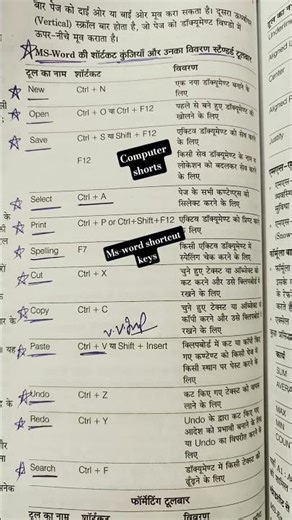 बार पेज को दाईं ओर या बाईं ओर मूव करा सकता है। दूसरा ऊर्ध्वाधर
(Vertical) स्क्रॉल बार होता है, जो पेज को डॉक्यूमेण्ट विण्डो में
ऊपर-नीचे मूव कराता है।
MS-Word की शॉर्टकट कुंजियाँ और उनका विवरण स्टैण्डर्ड टूलबार
टूल का नाम शॉर्टकट विवरण
New Ctrl + N एक नया डॉक्यूमेण्ट बनाने के लिए
Open Ctrl + O या Ctrl + F12 पहले से बने हुए डॉक्यूमेण्ट को खोलने के लिए
Save Ctrl + S या Shift + F12 एक्टिव डॉक्यूमेण्ट को सेव करने के लिए
F12 किसी सेव डॉक्यूमेण्ट के नाम व लोकेशन को बदलकर सेव करने के लिए
Computer
shorts
Select Ctrl + A पेज के सभी कण्टेण्ट्स को सिलेक्ट करने के लिए
Print Ctrl + P or Ctrl+Shift+F12 एक्टिव डॉक्यूमेण्ट को प्रिण्ट करने के लिए
Ms-word shortcut
keys
Spelling F7 किसी एक्टिव डॉक्यूमेण्ट में स्पेलिंग चेक करने के लिए
Cut Ctrl + X चुने हुए टेक्स्ट या ऑब्जेक्ट को कट करने और उसे क्लिपबोर्ड में रखने के लिए
Copy Ctrl + C चुने हुए टेक्स्ट या ऑब्जेक्ट को कॉपी करने और उसे क्लिपबोर्ड में रखने के लिए
v.v.Imp
Paste Ctrl + V या Shift + Insert क्लिपबोर्ड में कट या कॉपी किए गए कण्टेण्ट को किसी पेज में किसी स्थान पर पेस्ट करने के लिए
Undo Ctrl + Z कट किए गए टेक्स्ट को वापस लाने के लिए
Redo Ctrl + Y Undo के द्वारा कट किए गए आदेश को प्रभावी बनाने के लिए या Undo का विपरीत करने के लिए
Search Ctrl + F डॉक्यूमेण्ट में किसी टेक्स्ट को ढूँढने के लिए
फॉर्मेटिंग टूलबार
टूल का नाम शॉर्टकट विवरण